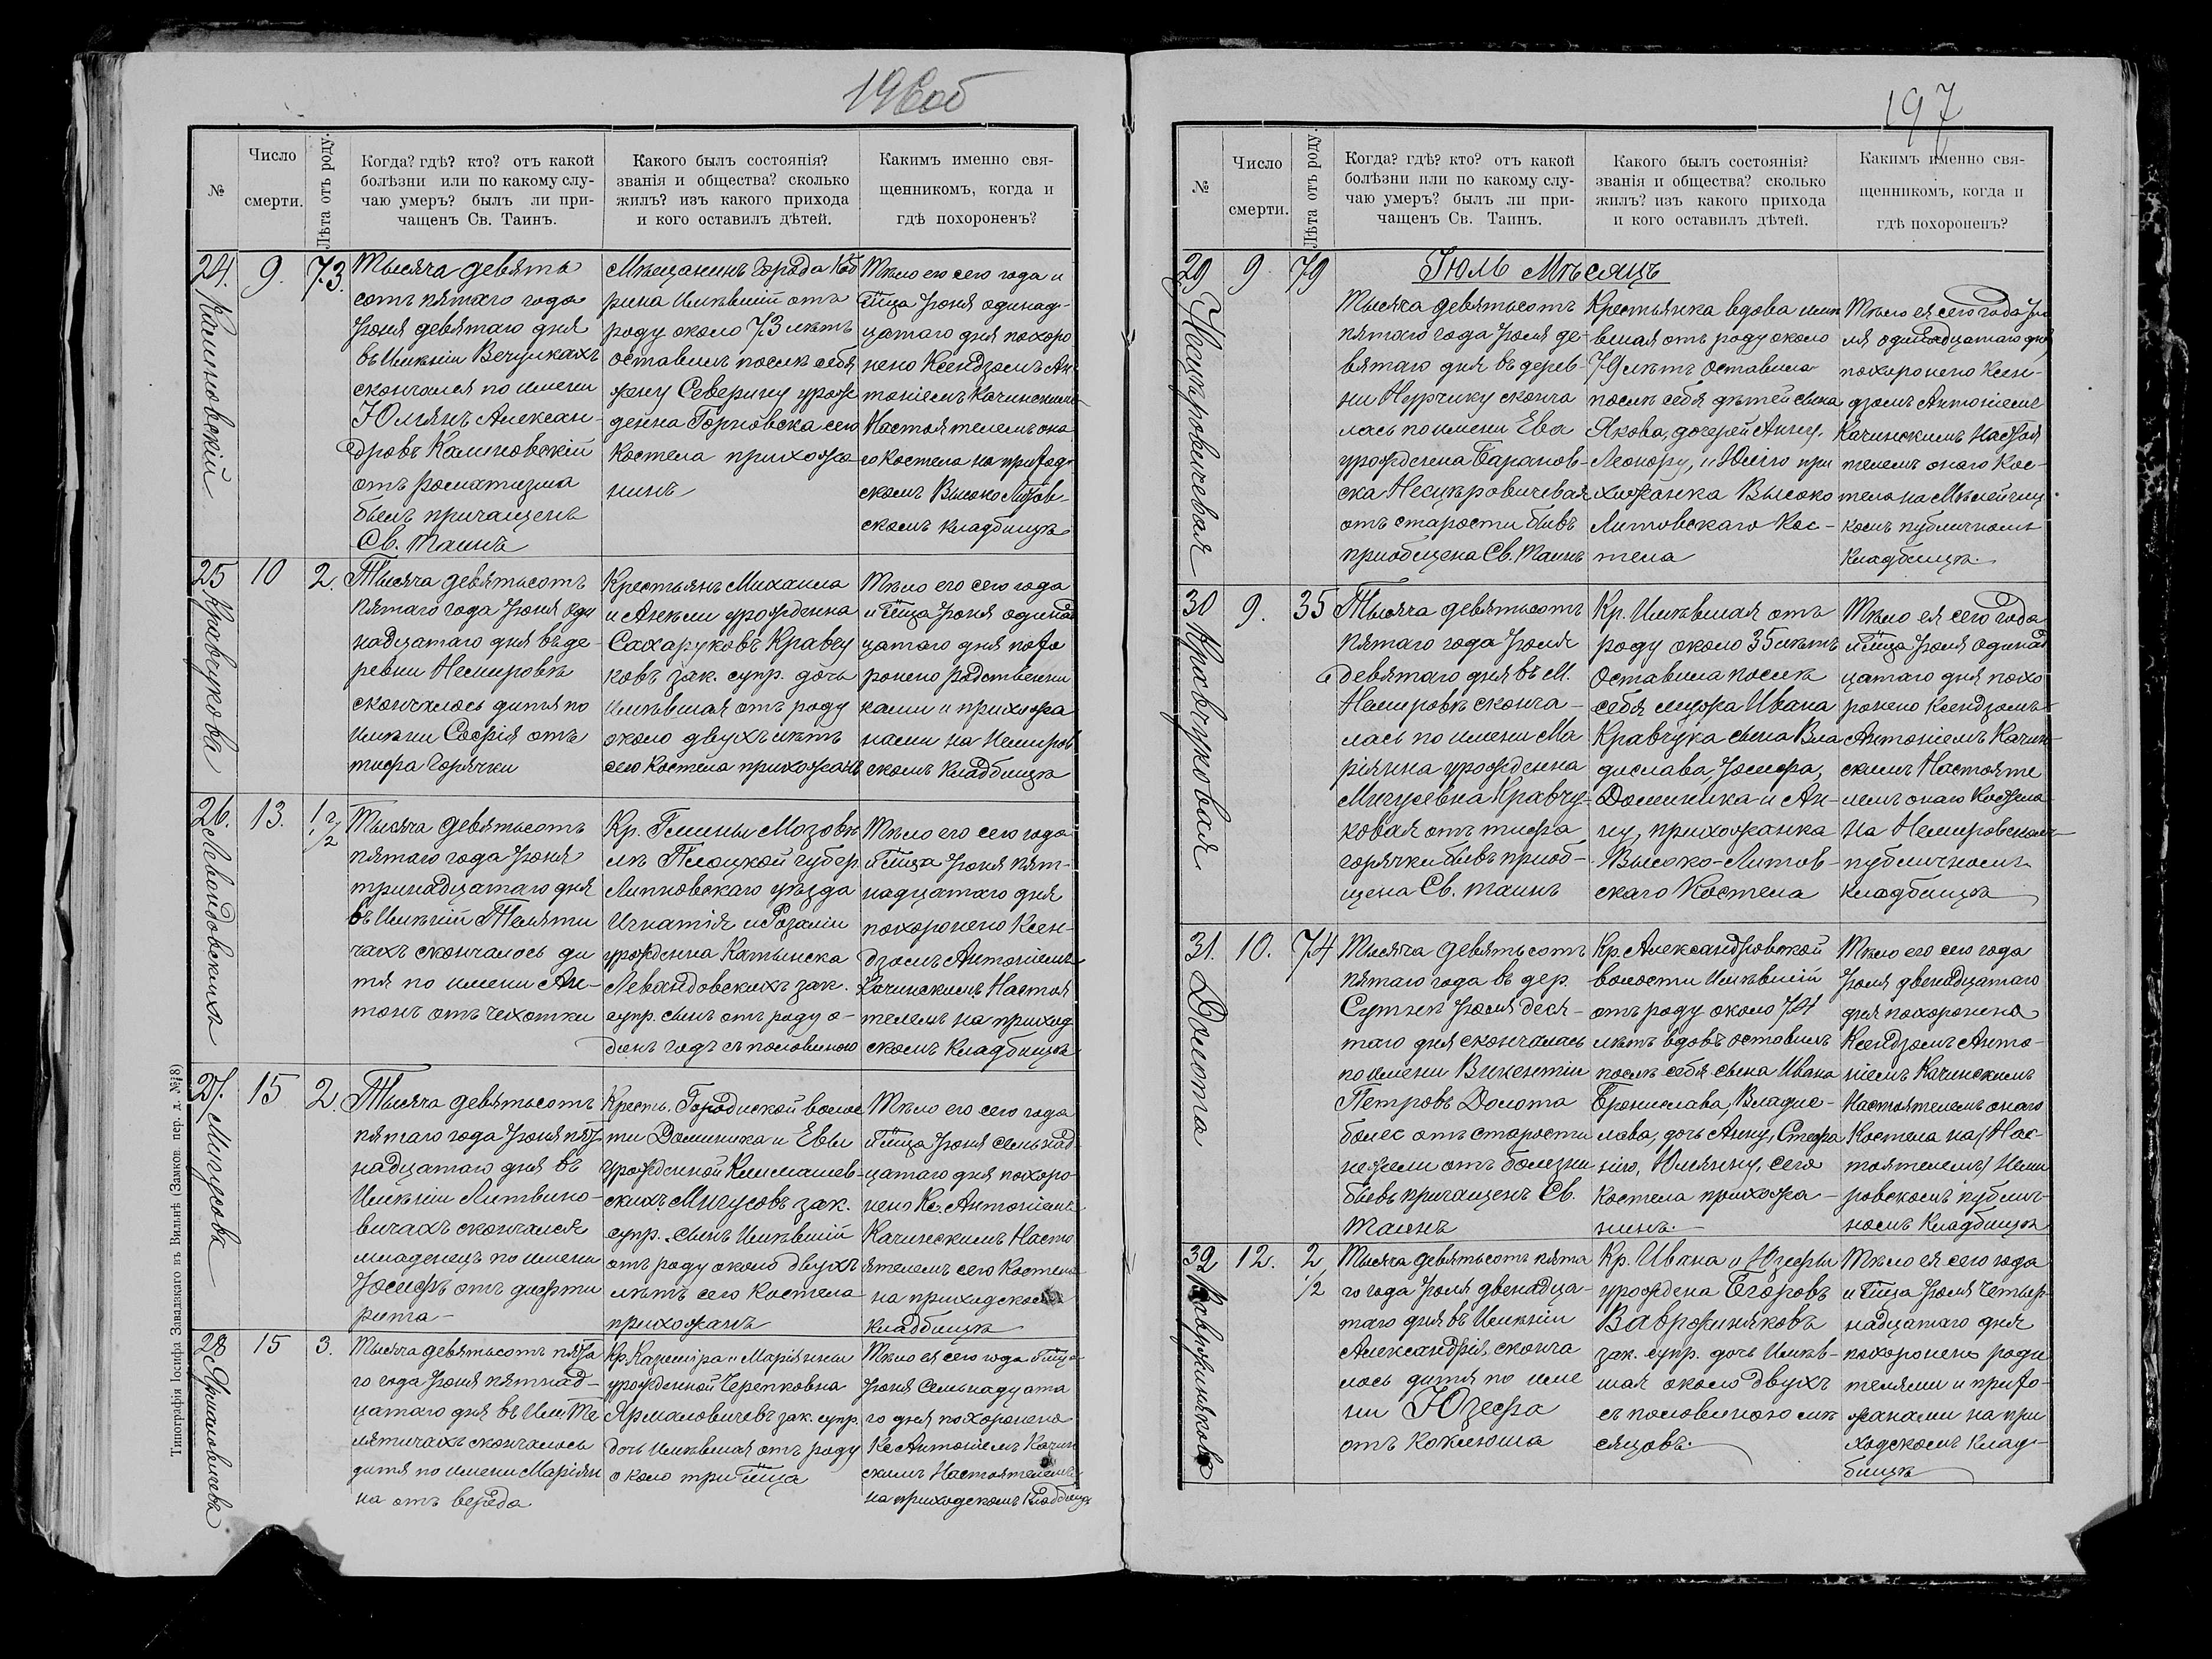 196об
№
Число смерти.
Лѣта отъ роду.
Когда? гдѣ? кто? отъ какой
болѣзни или по какому слу-
чаю умеръ? былъ ли при-
чащенъ Св. Таинъ.
Какого былъ состоянія?
званія и общества? сколько
жилъ? изъ какого прихода
и кого оставилъ дѣтей.
Какимъ именно свя-
щенникомъ, когда и
гдѣ похороненъ?
24.
Калиновскій
9.
73.
Тысяча девять
сотъ пятаго года
Іюня девятаго дня
въ Имѣніи Вечулкахъ
скончался по имени
Юліянъ Алексан-
дровъ Калиновскій
отъ ромматизма
былъ причащенъ
Св. Таинъ
Мѣщанинъ города Коб
рина Имѣвшій отъ
роду около 73 лѣтъ
оставилъ послѣ себя
жену Северину урож
денна Горновска сего
Костела прихожа
нинъ
Тѣло его сего года и
м̃ца Іюня одинад-
цатаго дня похоро
нено Ксендзомъ Ан
тоніемъ Качинскимъ
Настоятелемъ она
го Костела на приход-
скомъ Высоко Литов-
скомъ кладбищѣ
25
Кравчукова
10
2.
Тысяча девятьсотъ
пятаго года Іюня оди
надцатаго дня въ де-
ревни Немировѣ
скончалось дитя по
имени Софія отъ
тифа горячки
Крестьянъ Михаила
и Анели урожденна
Сахаруковъ Кравчу
ковъ зак. супр. дочь
имѣвшая отъ роду
около двухъ лѣтъ
сего Костела прихожанъ
Тѣло его сего года
и м̃ца Іюня одинад
цатаго дня похо
ронено родственни
ками и прихожа
нами на Немиров
скомъ кладбищѣ
26.
Левандовскихъ
13.
1 1/2
Тысяча девятьсотъ
пятаго года Іюня
тринадцатаго дня
въ Имѣніи Теляти
чахъ скончалось ди
тя по имени Ан-
тонъ отъ чехотки
Кр. Гмины Мазовѣ
лѣ Плоцкой губер
Липновскаго уѣзда
Игнатія и Розаліи
урожденна Катынска
Левандовскихъ зак.
супр. сынъ отъ роду о-
динъ годъ съ половиною
Тѣло его сего года
и м̃ца Іюня пят-
надцатаго дня
похоронено Ксен-
дзомъ Антоніемъ
Качинскимъ Настоя
телемъ на приход
скомъ Кладбищѣ
27.
Мигусова
15
2.
Тысяча девятьсотъ
пятаго года Іюня пят
надцатаго дня въ
Имѣніи Литвино-
вичахъ скончался
младенецъ по имени
Іосифъ отъ дифти
рита
Кресть. Городиской волос
ти Доминика и Евы
урожденной Климашев-
скихъ Мигусовъ зак.
супр. сынъ имѣвшій
отъ роду около двухъ
лѣтъ сего Костела
прихожанъ
Тѣло его сего года
и м̃ца Іюня семьнад
цатаго дня похоро-
нено Кс. Антоніемъ
Качинскимъ Насто
ятелемъ сего Костела
на приходскомъ
Кладбищѣ
28
15
3.
Тысяча девятьсотъ пята
го года Іюня пятнад-
цатаго дня въ Им Те
лятичахъ скончалось
дитя по имени Маріян
на отъ вереда
Кр. Казиміра и Маріянны
урожденной Черепковна
Ярмаловичевъ зак. супр.
дочь имѣвшая отъ роду
около три м̃ца
Тѣло ея сего года и м̃ца
Іюня семьнадцата
го дня похоронено
Кс Антоніемъ Качин
скимъ Настоятелемъ
на приходскомъ Кладбищѣ
Типографія Іосифа Завадзкаго въ Вильнѣ (Замков. пер. д. №/8)
197
№
Число смерти.
Лѣта отъ роду.
Когда? гдѣ? кто? отъ какой
болѣзни или по какому слу-
чаю умеръ? былъ ли при-
чащенъ Св. Таинъ.
Какого былъ состоянія?
званія и общества? сколько
жилъ? изъ какого прихода
и кого оставилъ дѣтей.
Какимъ именно свя-
щенникомъ, когда и
гдѣ похороненъ?
Іюль Мѣсяцъ
29
Несцѣровичевая
9
79
Тысяча девятьсотъ
пятаго года Іюля де-
вятаго дня въ дерев-
ни Нурчику сконча
лась по имени Ева
урождена Баранов-
ска Несцѣровичевая
отъ старости бывъ
приобщена Св. Таинъ
Крестьянка вдова имѣ
вшая отъ роду около
79 лѣтъ Оставила
послѣ себя дѣтей сына
Якова, дочерей Анну,
Леонору, и Юлію при
хожанка Высоко
Литовскаго Кос-
тела
Тѣло ея сего года Ію
ля одинадцатаго дня
похоронено Ксен-
дзомъ Антоніемъ
Качинскимъ Настоя
телемъ онаго Кос-
тела на Мѣлейчиц-
комъ публичномъ
Кладбищѣ.
30
Кравчуковая
9.
35
Тысяча девятьсотъ
пятаго года Іюля
девятаго дня въ М.
Немировѣ сконча-
лась по имени Ма
ріянна урожденна
Мигусевна Кравчу-
ковая отъ тифа
горячки бывъ приоб-
щена Св. Таинъ
Кр. Имѣвшая отъ
роду около 35 лѣтъ
Оставила послѣ
себя мужа Ивана
Кравчука сына Вла
дислава Іосифа,
Доминика и Ан-
ну, прихожанка
Высоко-Литов-
скаго Костела
Тѣло ея сего года
и м̃ца Іюля одинад
цатаго дня похо
ронено Ксендзомъ
Антоніемъ Качин-
скимъ Настояте
лемъ онаго Костела
на Немировскомъ
публичномъ
кладбищѣ
31.
Долота
10.
74
Тысяча девятьсотъ
пятаго года въ дер.
Сутнѣ Іюля деся-
таго дня скончалась
по имени Викентіи
Петровъ Долота
болес отъ старости
нежели отъ болезни
бывъ причащенъ Св.
Таинъ
Кр. Александровской
волости Имѣвшій
отъ роду около 74
лѣтъ вдовъ оставилъ
послѣ себя сына Ивана
Бронислава, Владис-
лава, дочь Анну, Стефа
нію, Юліянну, сего
Костела прихожа-
нинъ.
Тѣло его сего года
Іюля двенадцатаго
дня похоронено
Ксендзомъ Анто-
ніемъ Качинскимъ
Настоятелемъ онаго
Костела на (Нас-
тоятелемъ) Неми
ровскомъ публич-
номъ Кладбищѣ
32
12.
2 1/2
Тысяча девятьсотъ пята
го года Іюля двенадца-
таго дня въ Имѣніи
Александрія сконча
лось дитя по име
ни Юзефа
отъ Коклюша
Кр. Ивана и Юзефы
урождена Егоровъ
Вавржиняковъ
зак. супр. дочь Имѣв-
шая около двухъ
съ половиною мѣ
сяцовъ.
Тѣло ея сего года
и м̃ца Іюля Четыр-
надцатаго дня
похоронено роди
телями и прихо-
жанами на при
ходскомъ Клад-
бищѣ